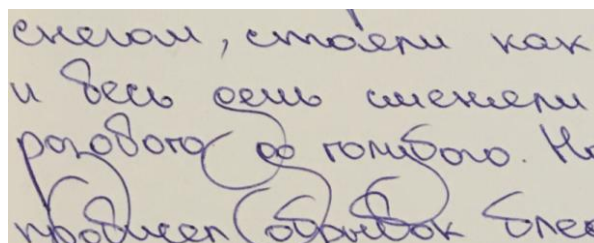 снегом, стояли как
и весь день меняли
розового до голубого. На
пробился обрывок блед